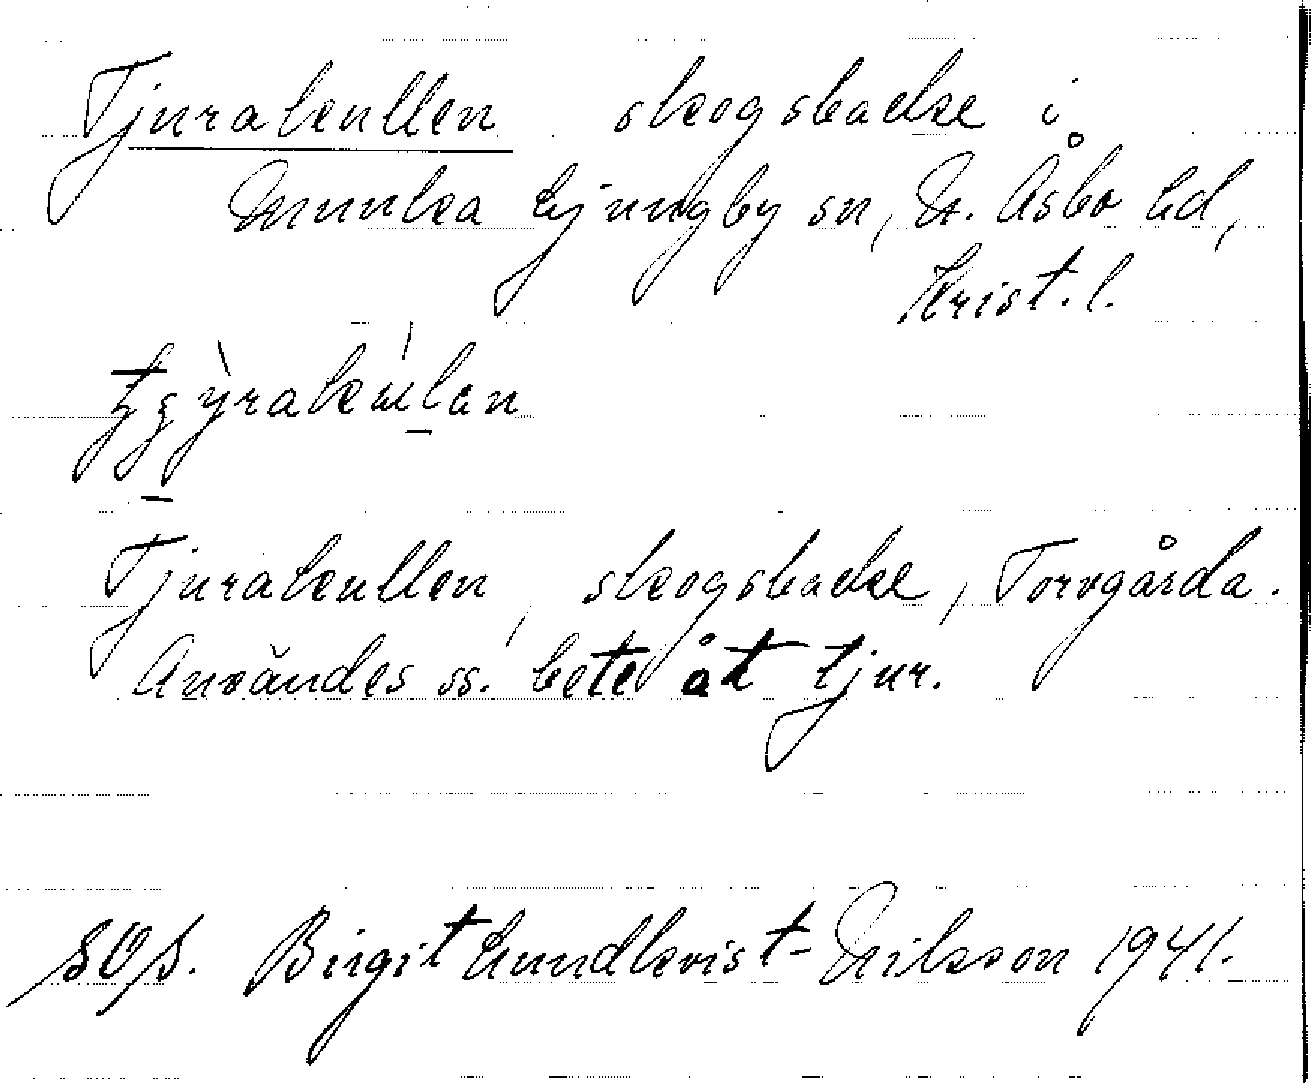 Tjurakullen skogsbacke i
Munka Ljungby sn, N. Åsbo hd,
Krist. l.
Tjurakullen, skogsbacke, Torvgårda.
Användes ss. bete åt tjur.
Birgit Lundkvist-Nilsson 1941.